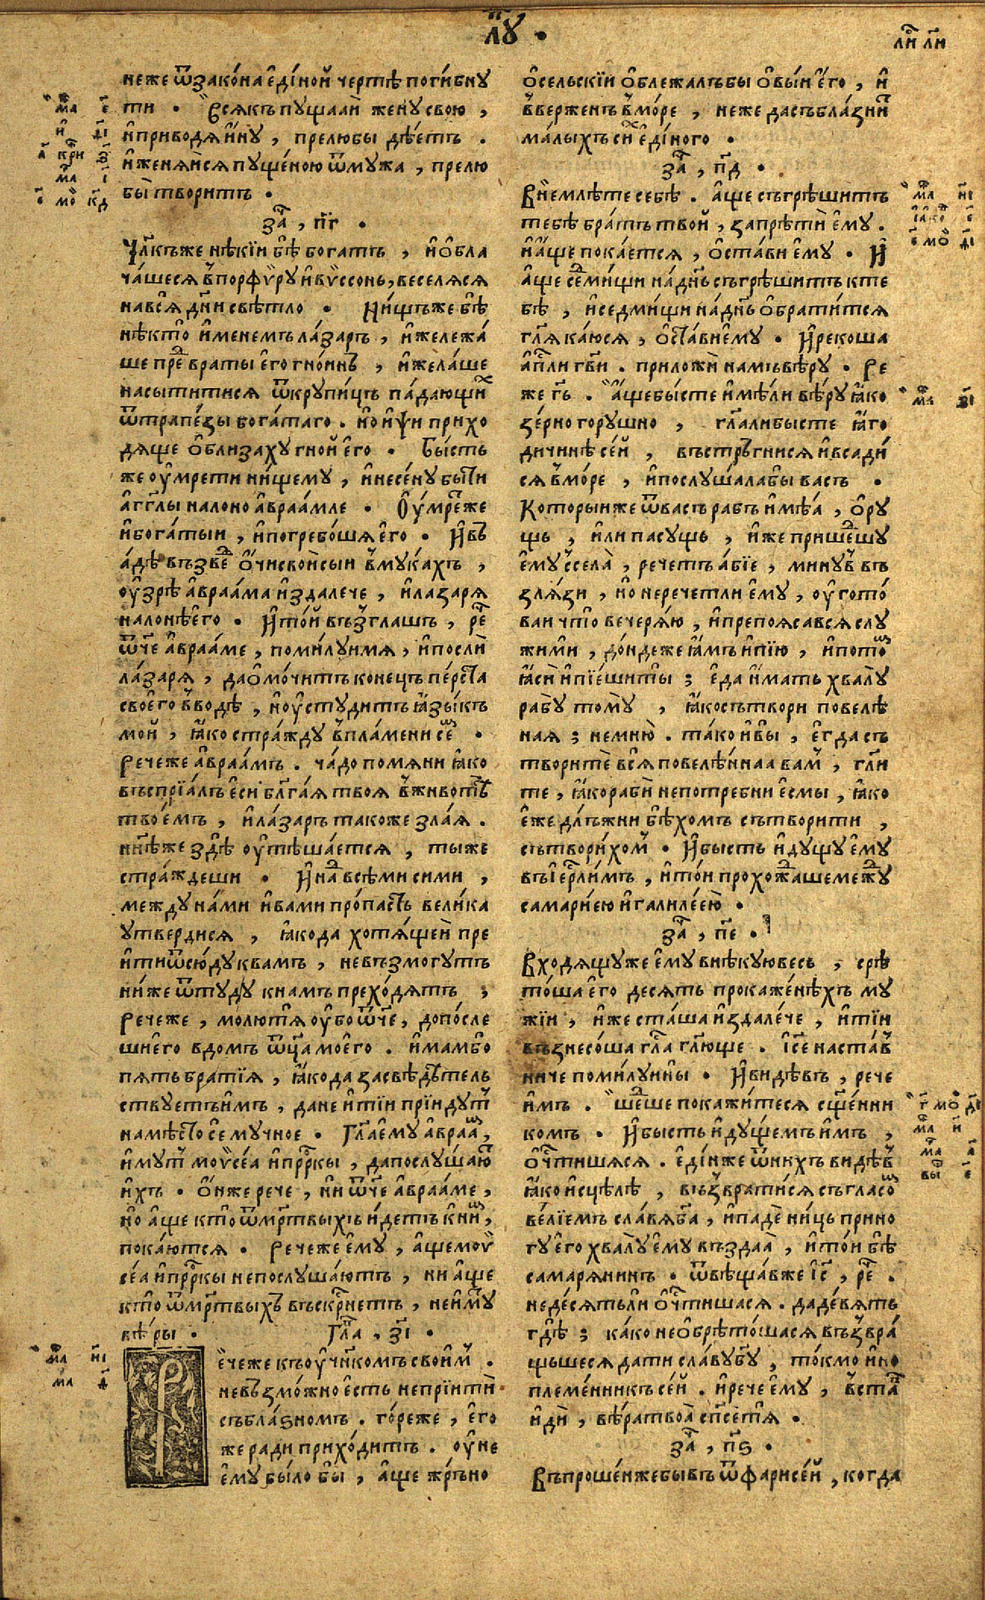 лꙋ҃ .
неже ѿзако́на є҆ді́ной чертѐ поги́бнꙋ
ти . Всѧ́къ пꙋща́ай женꙋ̀ свою̀ ,
и҆приводѧ̀ и҆́нꙋ , прелюбы̀ дѣ́етъ .
и҆женѧ́йсѧ пꙋще́ною ѿмꙋ́жа , прелю
бы̀ твори́тъ .
за҃ , п҃г .
Чл҃къже нѣ́кїи бѣ̀ бога́тъ , и҆ѡ҆бла
ча́шесѧ в̾порфѵ́рꙋ и҆вѵ́ссонь, веселѧ́сѧ
навсѧ̀ дн҃и свѣ́тло . Ни́щъже бѣ̀
нѣ́кто и҆́менемъ ла́заръ , и҆́жележа́
ше пре́д враты̀ є҆го̀ гно́инъ , и҆жела́ше
насы́титисѧ ѿкрꙋпи́цъ па́дающих
ѿтрапе́зы бога́таго . но и҆псѝ прихо
дѧ́ще ѡ҆близа́хꙋ гно́й є҆го̀ . Бы́сть
же ᲂу҆мре́ти ни́щемꙋ , и҆несе́нꙋ бы́ти
а҆́гг҃лы нало́но а҆враа́мле . Оу҆́мреже
и҆бога́тыи , и҆погребо́шѧ є҆го̀ . И҆въ
а́дѣ възве́д ѻ҆́чи свои̑ сыи в̾мꙋ́кахъ ,
ᲂу҆зрѣ̀ а҆враа́ма и҆здале́че , и҆ла́зарѧ
нало́нѣ є҆го̀ . И҆то́й възгла́шъ , ре́ч
ѿ́че а҆враа́ме , поми́лꙋимѧ , и҆послѝ
ла́зарѧ , даѡ҆мо́читъ коне́цъ пе́рста
своего̀ в̾водѣ̀ , и҆ᲂу҆стꙋди́тъ ꙗ҆зы́къ
мо́й , ꙗ҆́ко стра́ждꙋ в̾пла́мени се́м .
Рече́же а҆враа́мъ . ча́до помѧнѝ ꙗ҆́ко
въспрїѧ́лъ є҆сѝ бл҃га́ѧ твоѧ̀ в̾животѣ̀
твое́мъ , и҆ла́заръ та́коже зла́ѧ .
нн҃ѣже здѣ̀ ᲂу҆тѣша́етсѧ , ты́же
стра́ждеши . И҆на́д всѣ́ми си́ми ,
междꙋ на́ми и҆ва́ми про́пасть вели́ка
ᲂутверди́сѧ , ꙗ҆́кода хотѧ́щеи пре
и҆тѝ ѿсю́дꙋ къва́мъ , невъзмо́гꙋтъ
ни́же ѿтꙋ́дꙋ кна́мъ прехо́дѧтъ ,
Рече́же , молю́тѧ ᲂу҆бо ѿ́че , допо́сле
шиего̀ вдо́мъ ѿц҃а моего̀ . и҆́мамбо
пѧ́ть бра́тїѧ , ꙗ҆́кода засвѣдѣ́тель
ствꙋетъи҆́мъ , дане и҆ті́и прїи́дꙋт
намѣ́сто сѐ мꙋ́чное . Гл҃а є҆мꙋ̀ а҆враа́м ,
и҆́мꙋт моѵсе́а и҆пр҃ки , дапослꙋ́шают
и҆́хъ . ѻ҆́нже речѐ , нѝ ѿ́че а҆враа́ме ,
но а҆́ще кто̀ ѿме́ртвыхъ и҆́детъ кни́м ,
пока́ютсѧ . Рече́же є҆мꙋ̀ , а҆́щемоѵ
се́а и҆пр҃ки непослꙋ́шаютъ , ни а҆́ще
кто̀ ѿме́ртвыхъ въскр҃снетъ , неи҆́мꙋт
вѣ́ры . Гла҃ , з҃і .
Ре́чеже къᲂу҆чн҃комъ свои́м .
невъзмо́жно є҆́сть непрїитѝ
събла́зномъ . го́реже , є҆го̀
же ра́ди прихо́дитъ . ᲂу҆́не
є҆мꙋ̀ бы́ло бы̀ , а҆́ще жръно
ѻ҆се́льскїи ѡ҆блежа́лъбы ѡ҆вы́и є҆го̀ , и҆
вве́рженъ в̾мо́ре , неже дасъбла́знит
ма́лыхъ си́х є҆ди́ного .
за҃ , п҃д .
Внемлѣ́те себѣ̀ . а҆́ще съгрѣши́тъ
тебѣ̀ бра́тъ тво́й , запретѝ є҆мꙋ̀ .
и҆а҆́ще пока́етсѧ , ѡ҆ста́ви є҆мꙋ̀ . И҆
а҆́ще се́дмищи на́днь съгрѣши́тъ кте
бѣ̀ , и҆се́дмищи на́днь ѡ҆брати́тсѧ
гл҃ѧ ка́юсѧ , ѡ҆ста́виемꙋ . И҆реко́ша
а҆пл҃и гв҃и . приложѝ на́мъ вѣ́рꙋ . Ре
же гь҃ . А҆́щебысте и҆мѣ́ли вѣ́рꙋ ꙗ҆́ко
зе́рно горꙋ́шно , гла҃либысте ꙗ҆́го
ди́чинѣ се́й , въстръгни́сѧ и҆всади́
сѧ в̾мо́ре , и҆послꙋ́шалабы ва́съ .
Кото́рыиже ѿва́съ ра́бъ и҆мѣ́а , ѻ҆рꙋ
щь , и҆́ли пасꙋ́щь , и҆́же прише́дшꙋ
є҆мꙋ̀ ссела̀ , рече́тъ а҆́бїе , минꙋ́в въ
злѧ́зи , но нерече́тли є҆мꙋ̀ , ᲂу҆гото́
ваи что̀ вече́рѧю , и҆препоѧ́савсѧ слꙋ
жи́ми , до́ндеже ꙗ҆́мъ и҆пїю̀ , и҆пото́м
ꙗ҆́си и҆пїе́ши ты̀ ; є҆да̀ и҆́мать хвалꙋ̀
рабꙋ̀ томꙋ̀ , ꙗ҆́косътвори повелѣ́
ная ; немню̀ . та́ко и҆вы̀ , є҆гда̀ съ
творитѐ всѧ̀ повелѣ́ннаа ва́м , гл҃и
те , ꙗ҆́корабѝ непотре́бни є҆смы̀ , ꙗ҆́ко
є҆́же длъ́жни бѣ́хомъ сътвори́ти ,
сътвори́хом . И҆бы́сть и҆дꙋщꙋ є҆мꙋ̀
въі҆ерл҃и́мъ , и҆то́и прохожда́шемеждꙋ̀
самарі́ею и҆галиле́ею .
за҃ , п҃е .
Входѧ́щꙋже є҆мꙋ̀ внѣ́кꙋювесь , срѣ́
то́ша є҆го̀ де́сѧть прокаже́нѣхъ мꙋ
жїи , и҆́же ста́ша и҆здале́че , и҆ті́и
възнесо́ша гла́с гл҃юще . і҆с҃е наста́в
ниче поми́лꙋины . И҆ви́дѣвъ , рече
и҆́мъ . ше́дше покажи́тесѧ сщ҃е́нни
комъ . И҆бы́сть и҆дꙋ́щемъ и҆́мъ ,
ѡ҆чи́стишѧсѧ . є҆ди́нже ѿни́хъ ви́дѣв
ꙗ҆́ко и҆сцѣлѣ̀ , възврати́сѧ съгла́сом
ве́лїемъ сла́вѧ бг҃а , и҆падѐ ни́ць прино
гꙋ є҆го̀ хвалꙋ̀ є҆мꙋ̀ въздаа̀ , и҆то́и бѣ̀
самарѧни́нъ . ѿвѣща́вже і҆с҃ , ре́ч .
неде́сѧтьли ѡ҆чи́стишасѧ . даде́вѧть
гдѣ̀ ; ка́ко неѡ҆брѣто́шасѧ възвра́
щьшесѧ да́ти сла́вꙋ бг҃ꙋ , то́кмо и҆но
племе́нникъ се́й . и҆речѐ є҆мꙋ̀ , въста́в
и҆дѝ , вѣ́ра твоа̀ сп҃се́тѧ .
за҃ , п҃ѕ .
Въпроше́нжебывъ ѿфарисе́й , когда